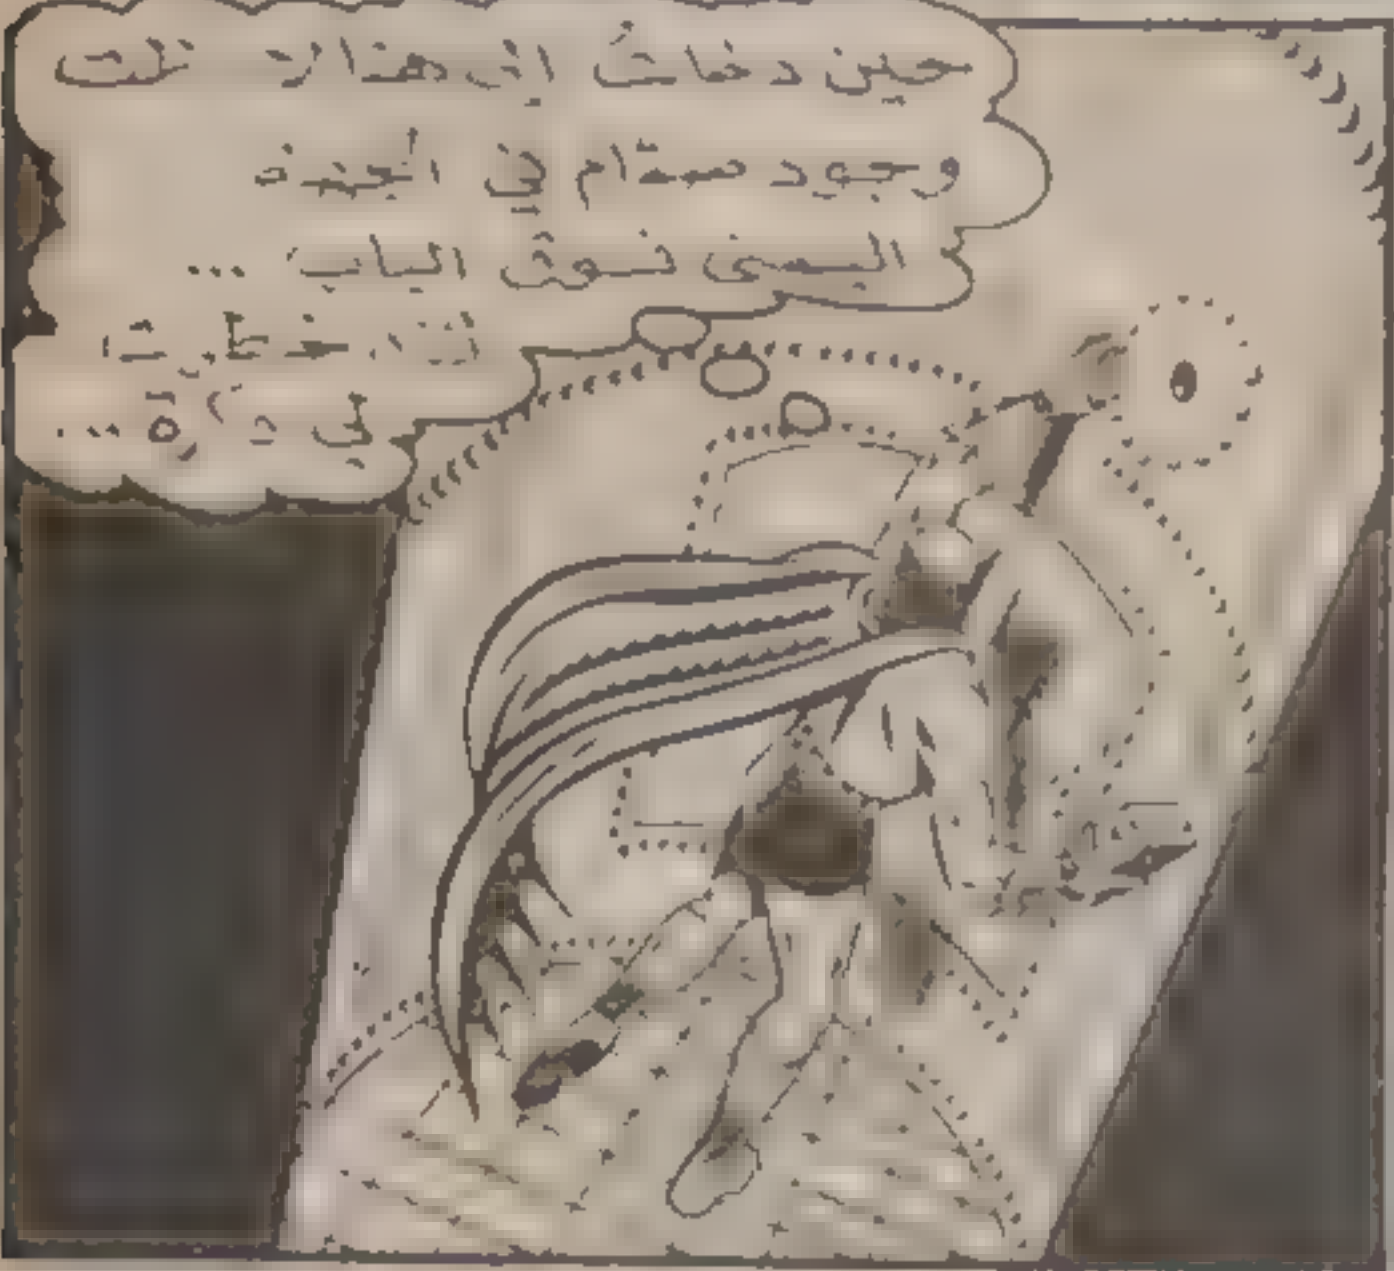 حين دخلتُ إلى هنا لا حظت
وجود صمّام في الجهة
اليمنى فوق الباب ...
لقد خطرت
لي فكرة ...